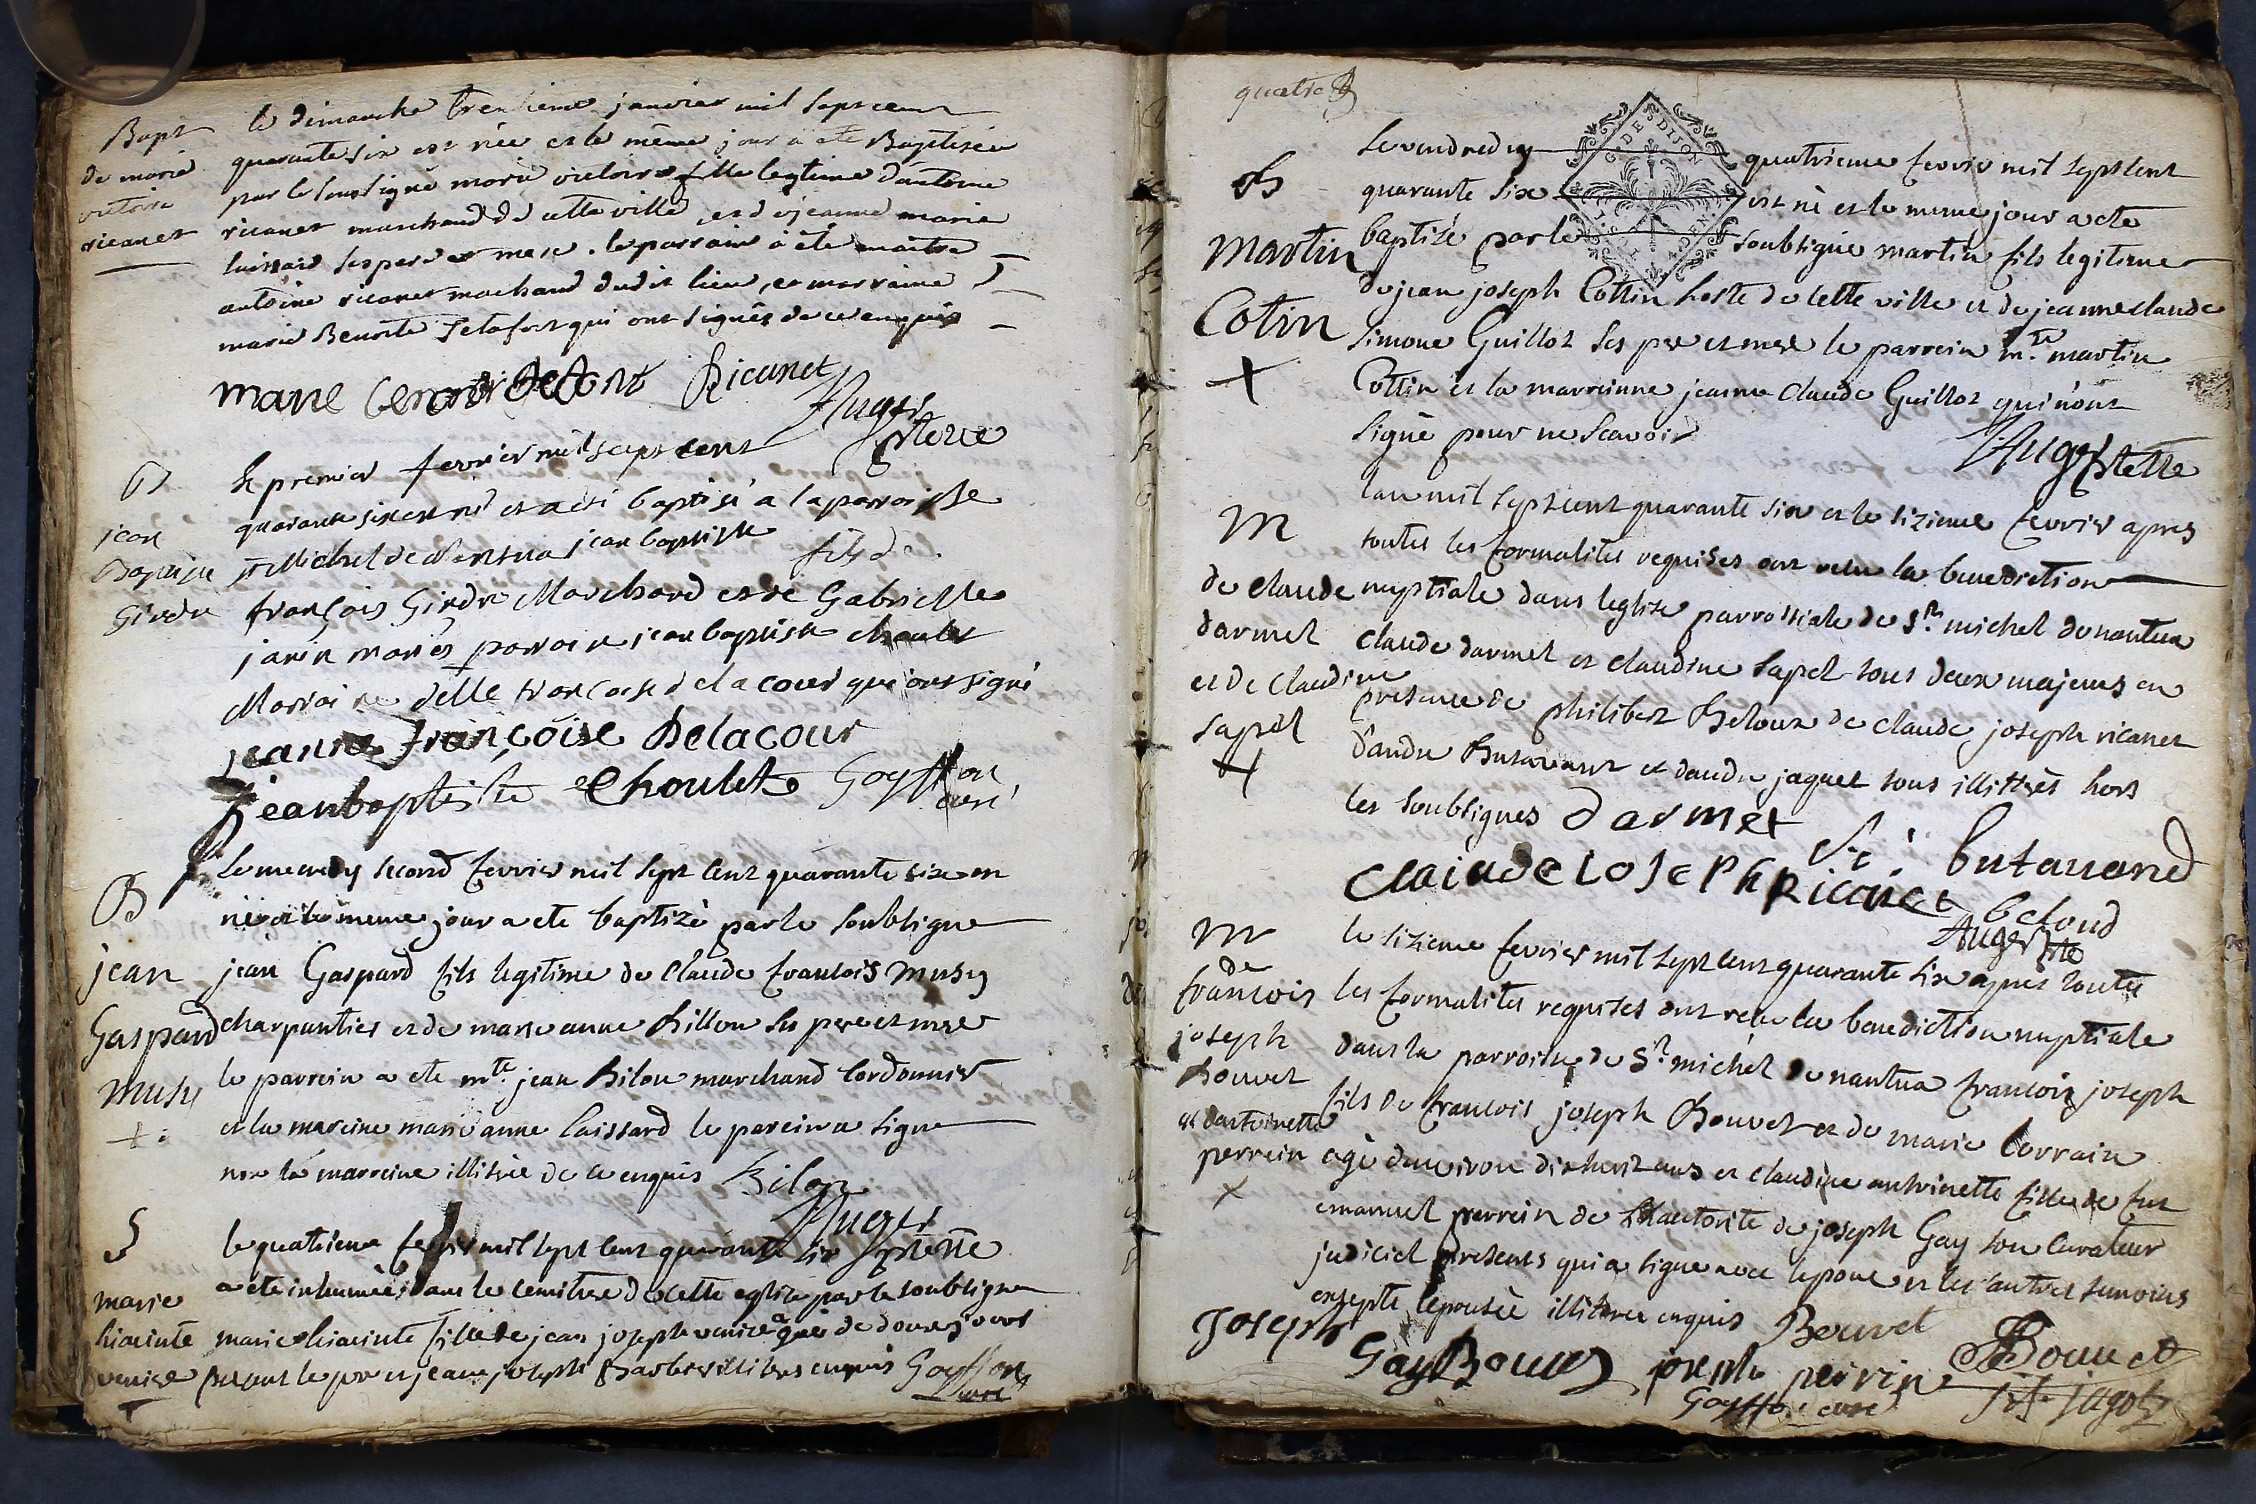 Bapt
de marie
victoire
ricanet
le dimanche trentieme janvier mil sept cent
quarante six est née et le même jour a été Baptisée
par le soussigné marie victoire fille legitime d'antoine
ricanet marchand de cette ville, et de jeanne marie
luissard ses pere et mere. le parrain a été maitre
antoine ricanet marchand dudit lieu, et marraine
marie Benoite qui ont signés de ce enquis
marie benoite Ricanet
Auger
ptetre
B
jean
Baptiste
Girdre
le premier fevrier mil sept cent
quarante six est né et a été baptisé a la parroisse
st Michel de Nantua jean baptiste
fils de
françois Girdre Marchand et de Gabrielle
janin mariés parrain jean baptiste choulet
Marraine delle francoise delacour qui ont signé
jeanne françoise Delacour
jean baptiste choulet Goyffon
curé
B
jean
Gaspard
Musy
+
Le mecredy second fevrier mil sept cent quarante six est
né et le meme jour a ete baptizé par le soubsigne
jean Gaspard fils legitime de Claude francois Musy
charpantier et de marie anne Billon ses pere et mere
le parrein a ete mte jean Bilon marchand Cordonnier
et la mareine marie anne laissard le parein a signe
non la marreine illitrée de ce enquis Bilon
Auger
ptetre
S
marie
hiacinte
venice
le quatrieme fevrier mil sept cent quarante six
a ete inhumée dans le cemitiere de cette eglise par le soubsigne
marie hiacinte fille de jean joseph venice agée de douze jours
present le pere et jean joseph Barbe illitres enquis Goyffon
curé
quatre
G. DE DIJON
B
martin
Cotin
+
Le vendredy quatrieme fevrier mil sept cent
quarante six est né et le meme jour a ete
baptisé par le soubsigné martin fils legitime
de jean joseph Cottin hoste de cette ville et de jeanne claude
simone Guillot ses pere et mere le parrein mtre martin
Cottin et la marreinne jeanne Claude Guillot qui n'ont
signé pour ne scavoir
Auger ptetre
M
de claude
darmet
et de claudine
sapet
+
l'an mil sept cent quarante six et le sizieme fevrier apres
toutes les formalites requises ont recu la benediction
nuptiale dans l'eglise parrossiale de St. michel de nantua
claude darmet et claudine sapet tous deux majeurs en
presence de philibert Beloux de claude joseph ricanet
d'andre Butavant et d'andre jaquet tous illittrés hors
les soubsignes Darmet
butavand
claude joseph Ricanet beloud
Auger ptre
M
de
francois
joseph
Bouvet
et d'antoinette
perrein
+
le sizieme fevrier mil sept cent quarante six apres toutes
les formalites requises ont recu la benediction nuptiale
dans la parroisse de St. michel de nantua francois joseph
fils de francois joseph Bouvet et de marie Corrain
agé d'environ dixhuit ans et claudine antoinette fille de feu
emanuel perrein de l'autorite de joseph Gay son curateur
judiciel presents qui a signe avec l'epoux et les autres temoins
exsepte l'epousée illitrée enquis Bouvet
joseph
Gay Bouvet joseph perrin Bouvet
Goyffon curé jagot